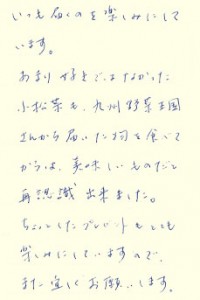 いつも届くのを楽しみにして
います。
あまり好きではなかった
小松菜も、九州野菜王国
さんから届いた物を食べて
からは、美味しいものだと
再認識出来ました。
ちょっとしたプレゼントもとても
楽しみにしていますので、
また宜しくお願いします。